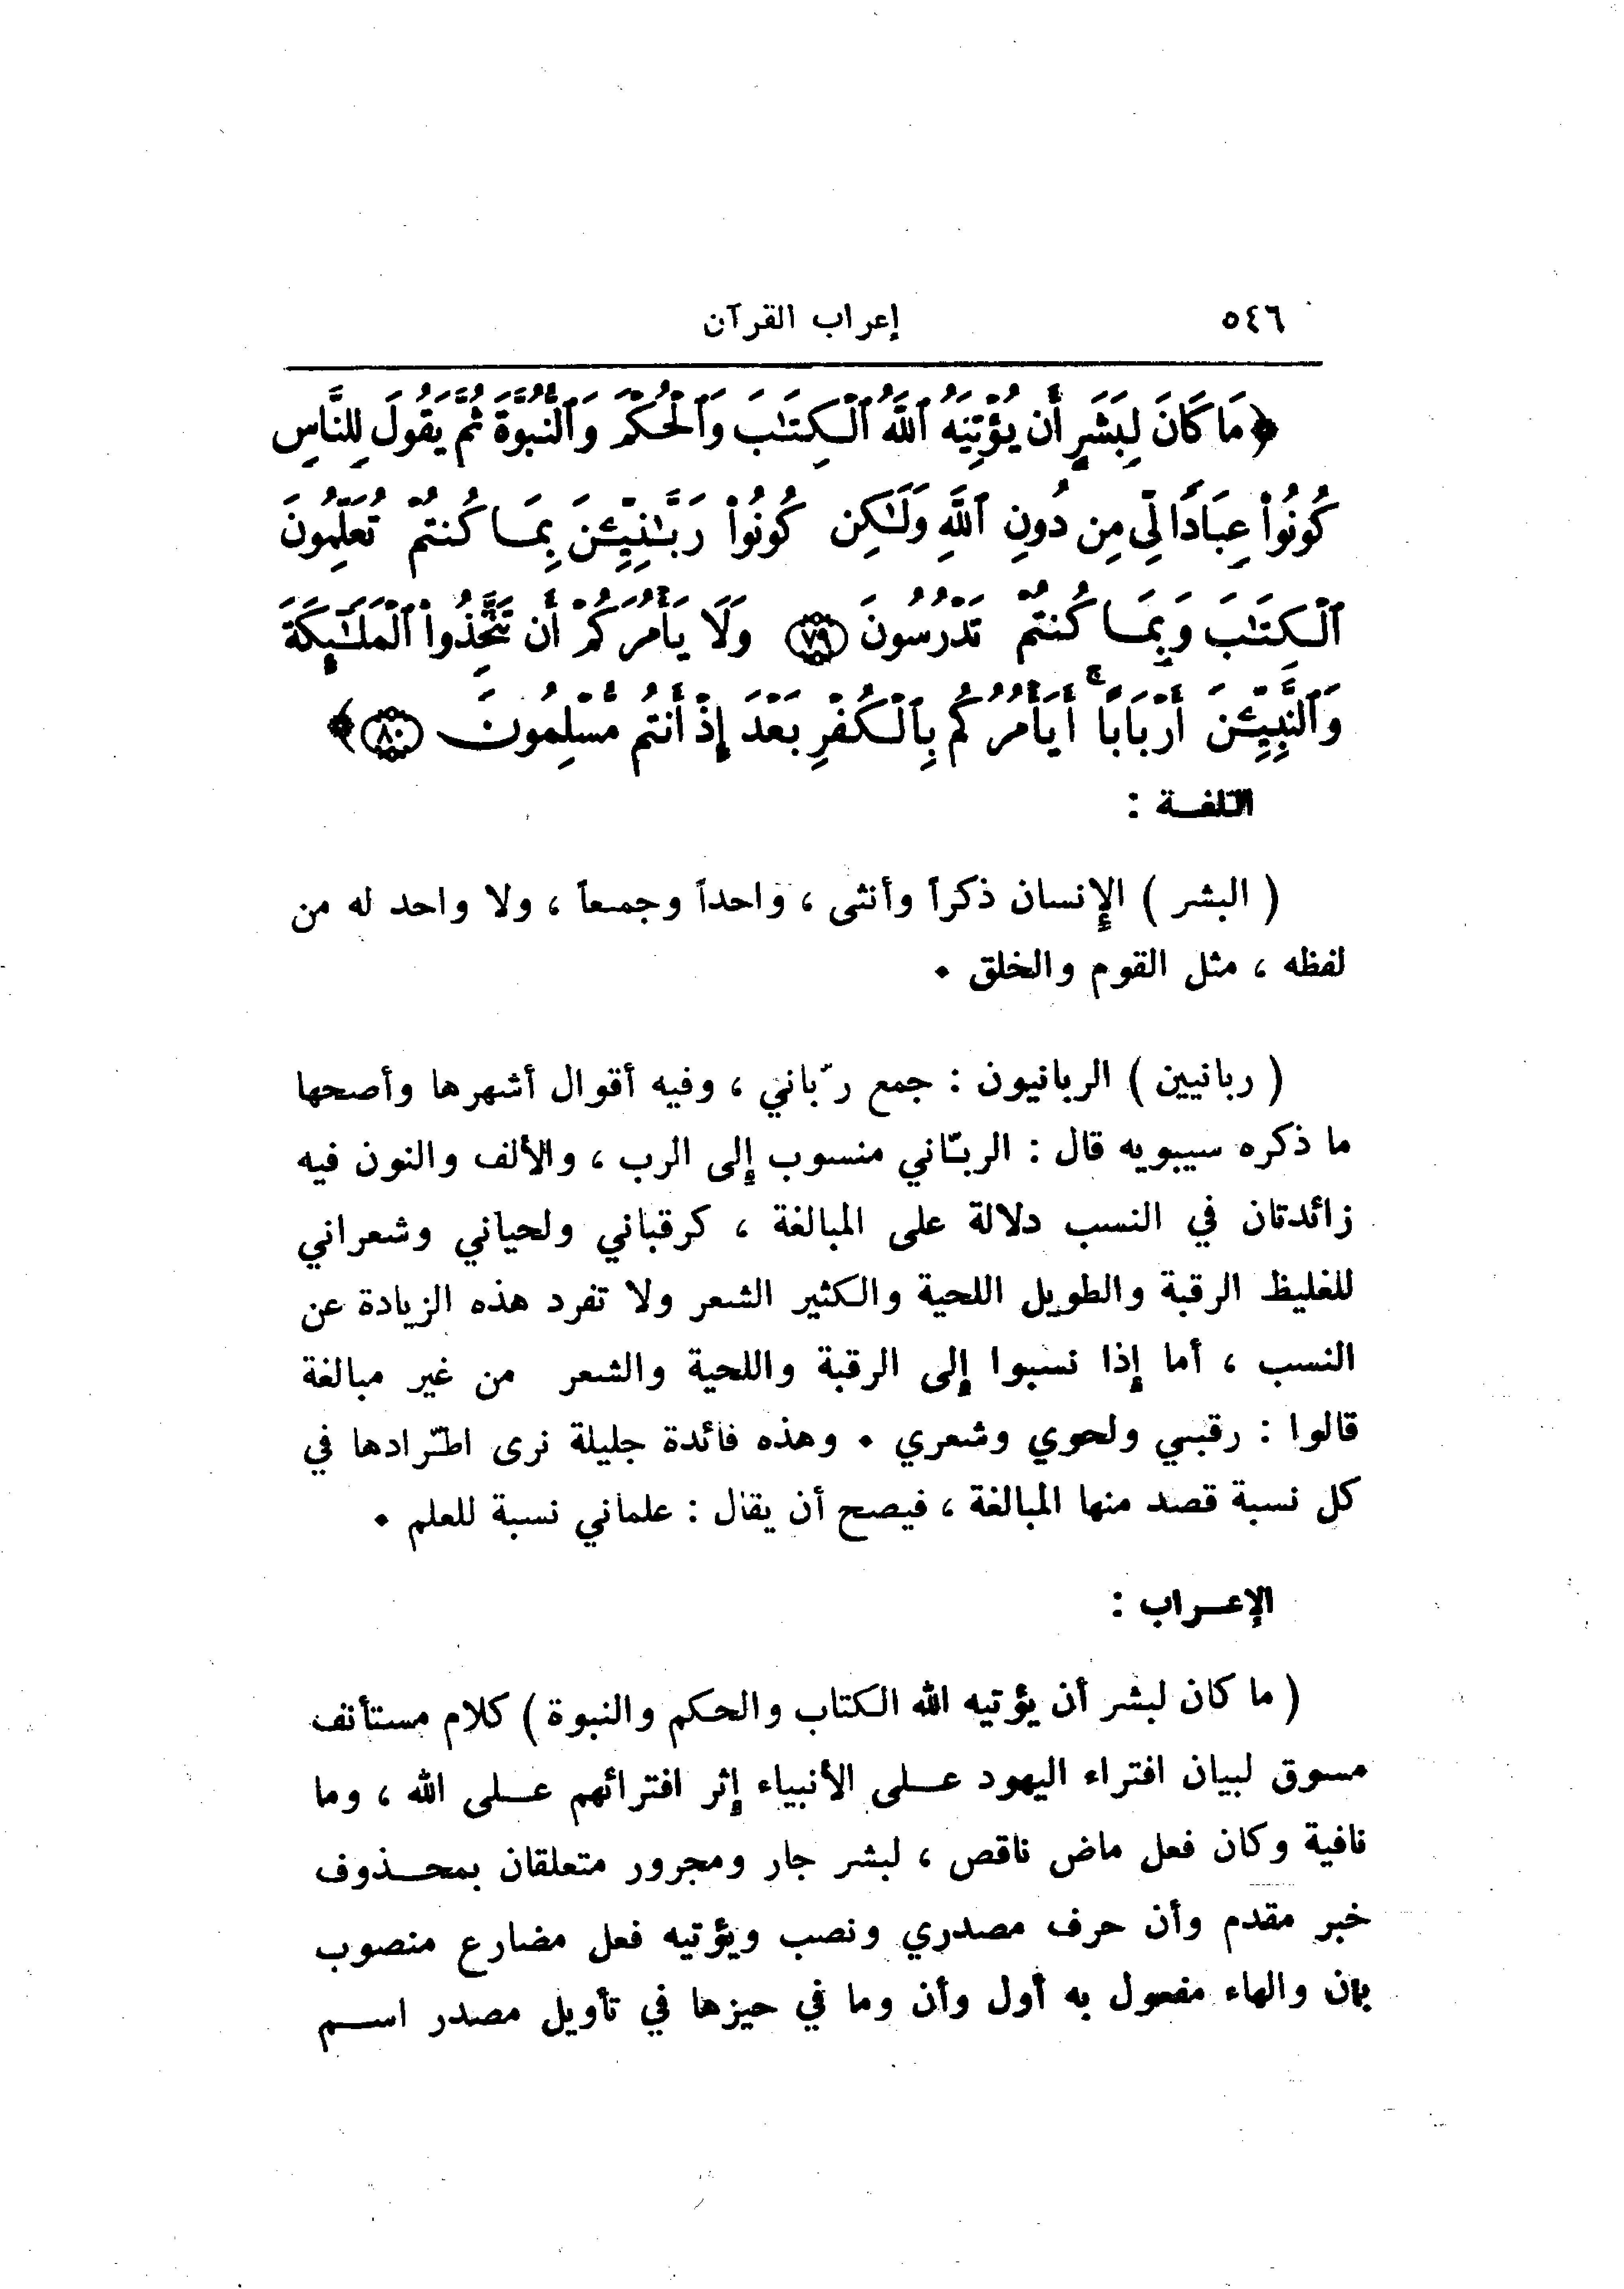 ٥٤٦
إعراب القرآن
﴿مَا كَانَ لِبَشَرٍ أَن يُؤْتِيَهُ ٱللَّهُ ٱلْكِتَٰبَ وَٱلْحُكْمَ وَٱلنُّبُوَّةَ ثُمَّ يَقُولَ لِلنَّاسِ
كُونُوا۟ عِبَادًا لِّى مِن دُونِ ٱللَّهِ وَلَٰكِن كُونُوا۟ رَبَّٰنِيِّـۧنَ بِمَا كُنتُمْ تُعَلِّمُونَ
ٱلْكِتَٰبَ وَبِمَا كُنتُمْ تَدْرُسُونَ ٧٩ وَلَا يَأْمُرَكُمْ أَن تَتَّخِذُوا۟ ٱلْمَلَٰٓئِكَةَ
وَٱلنَّبِيِّـۧنَ أَرْبَابًا ۚ أَيَأْمُرُكُم بِٱلْكُفْرِ بَعْدَ إِذْ أَنتُم مُّسْلِمُونَ ٨٠﴾
اللغـة :
( البشر ) الإنسان ذكراً وأنثى ، واحداً وجمعاً ، ولا واحد له من
لفظه ، مثل القوم والخلق .
( ربانيين ) الربانيون : جمع ربّاني ، وفيه أقوال أشهرها وأصحها
ما ذكره سيبويه قال : الربّاني منسوب إلى الرب ، والألف والنون فيه
زائدتان في النسب دلالة على المبالغة ، كرقباني ولحياني وشعراني
للغليظ الرقبة والطويل اللحية والكثير الشعر ولا تفرد هذه الزيادة عن
النسب ، أما إذا نسبوا إلى الرقبة واللحية والشعر من غير مبالغة
قالوا : رقبي ولحوي وشعري . وهذه فائدة جليلة نرى اطّرادها في
كل نسبة قصد منها المبالغة ، فيصح أن يقال : علماني نسبة للعلم .
الإعـراب :
( ما كان لبشر أن يؤتيه الله الكتاب والحكم والنبوة ) كلام مستأنف
مسوق لبيان افتراء اليهود عـلى الأنبياء إثر افترائهم عـلى الله ، وما
نافية وكان فعل ماض ناقص ، لبشر جار ومجرور متعلقان بمحـذوف
خبر مقدم وأن حرف مصدري ونصب ويؤتيه فعل مضارع منصوب
بان والهاء مفعول به أول وأن وما في حيزها في تأويل مصدر اسـم